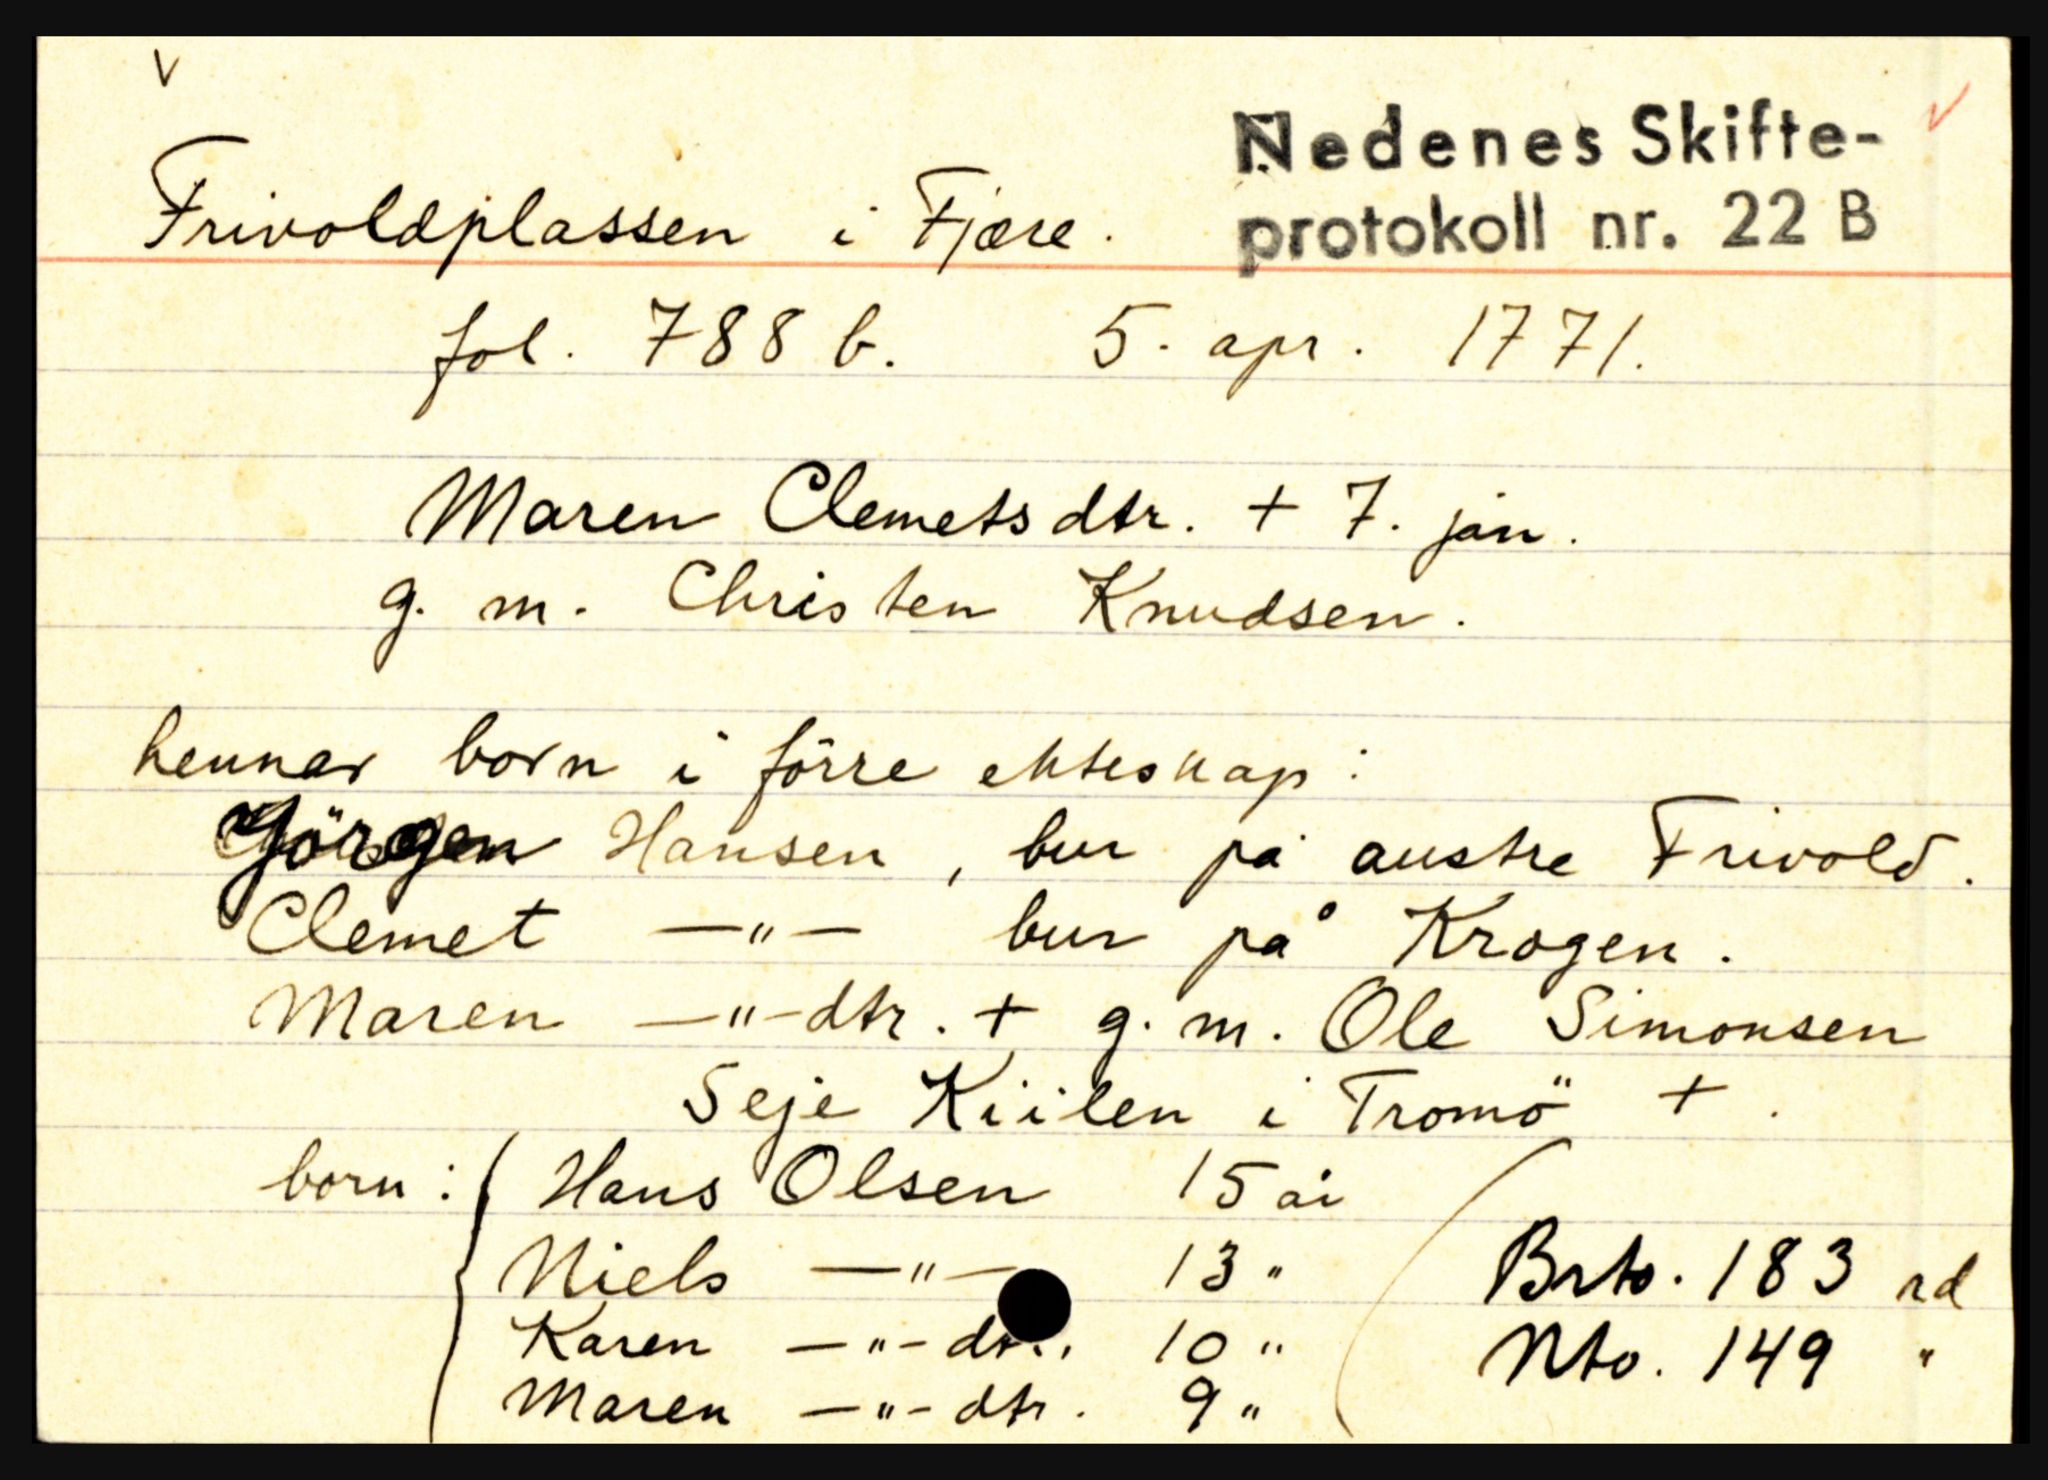 Nedenes Skifte-
protokoll nr. 22 B
Frivoldplassen i Fjære.
fol. 788 b. 5. apr. 1771.
Maren Clemetsdtr. + 7. jan.
g. m. Christen Knudsen.
hennar born i förre ekteskap:
Jörgen Hansen, bur på austre Frivold.
Clemet —"— bur på Krogen.
Maren —"-dtr. + g. m. Ole Simonsen
Seje Kiilen i Tromö +.
born: Hans Olsen 15 år
Niels —"— 13 "
Karen —"-dtr. 10 "
Maren —"-dtr. 9 "
Brto. 183 rd
Nto. 149 "